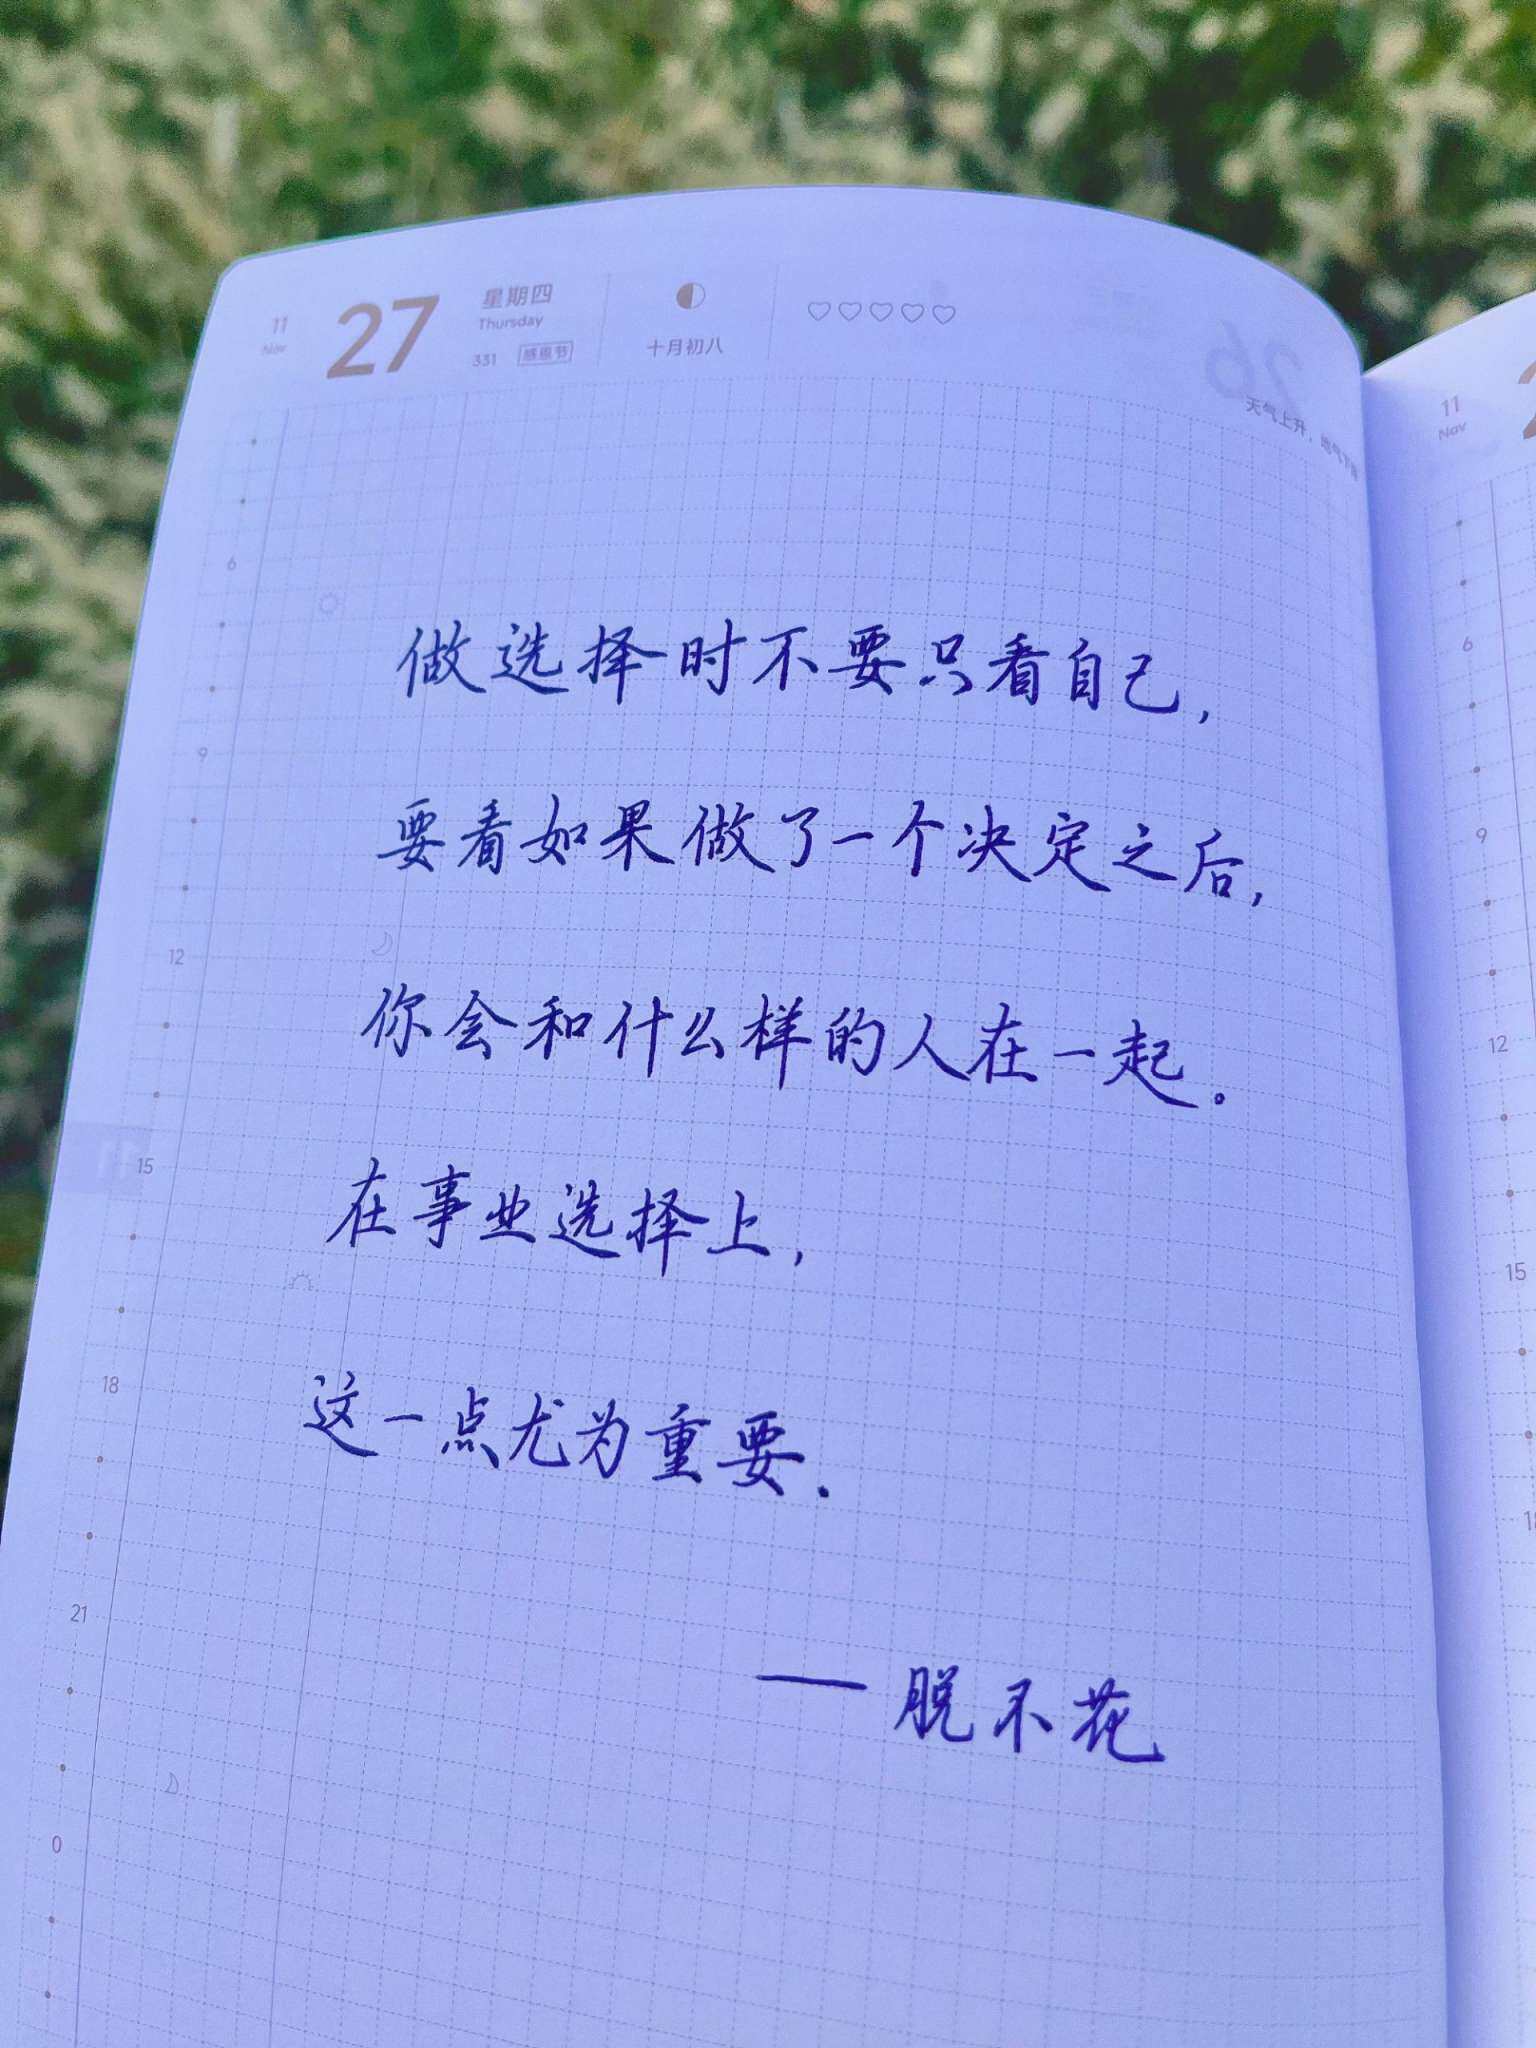 11
Nov
27
星期四
Thursday
331 感恩节
十月初八
26
天气上升，地气下降
做选择时不要只看自己，
要看如果做了一个决定之后，
你会和什么样的人在一起。
在事业选择上，
这一点尤为重要.
——脱不花
6
9
12
15
18
21
0
11
Nov
6
9
12
15
18